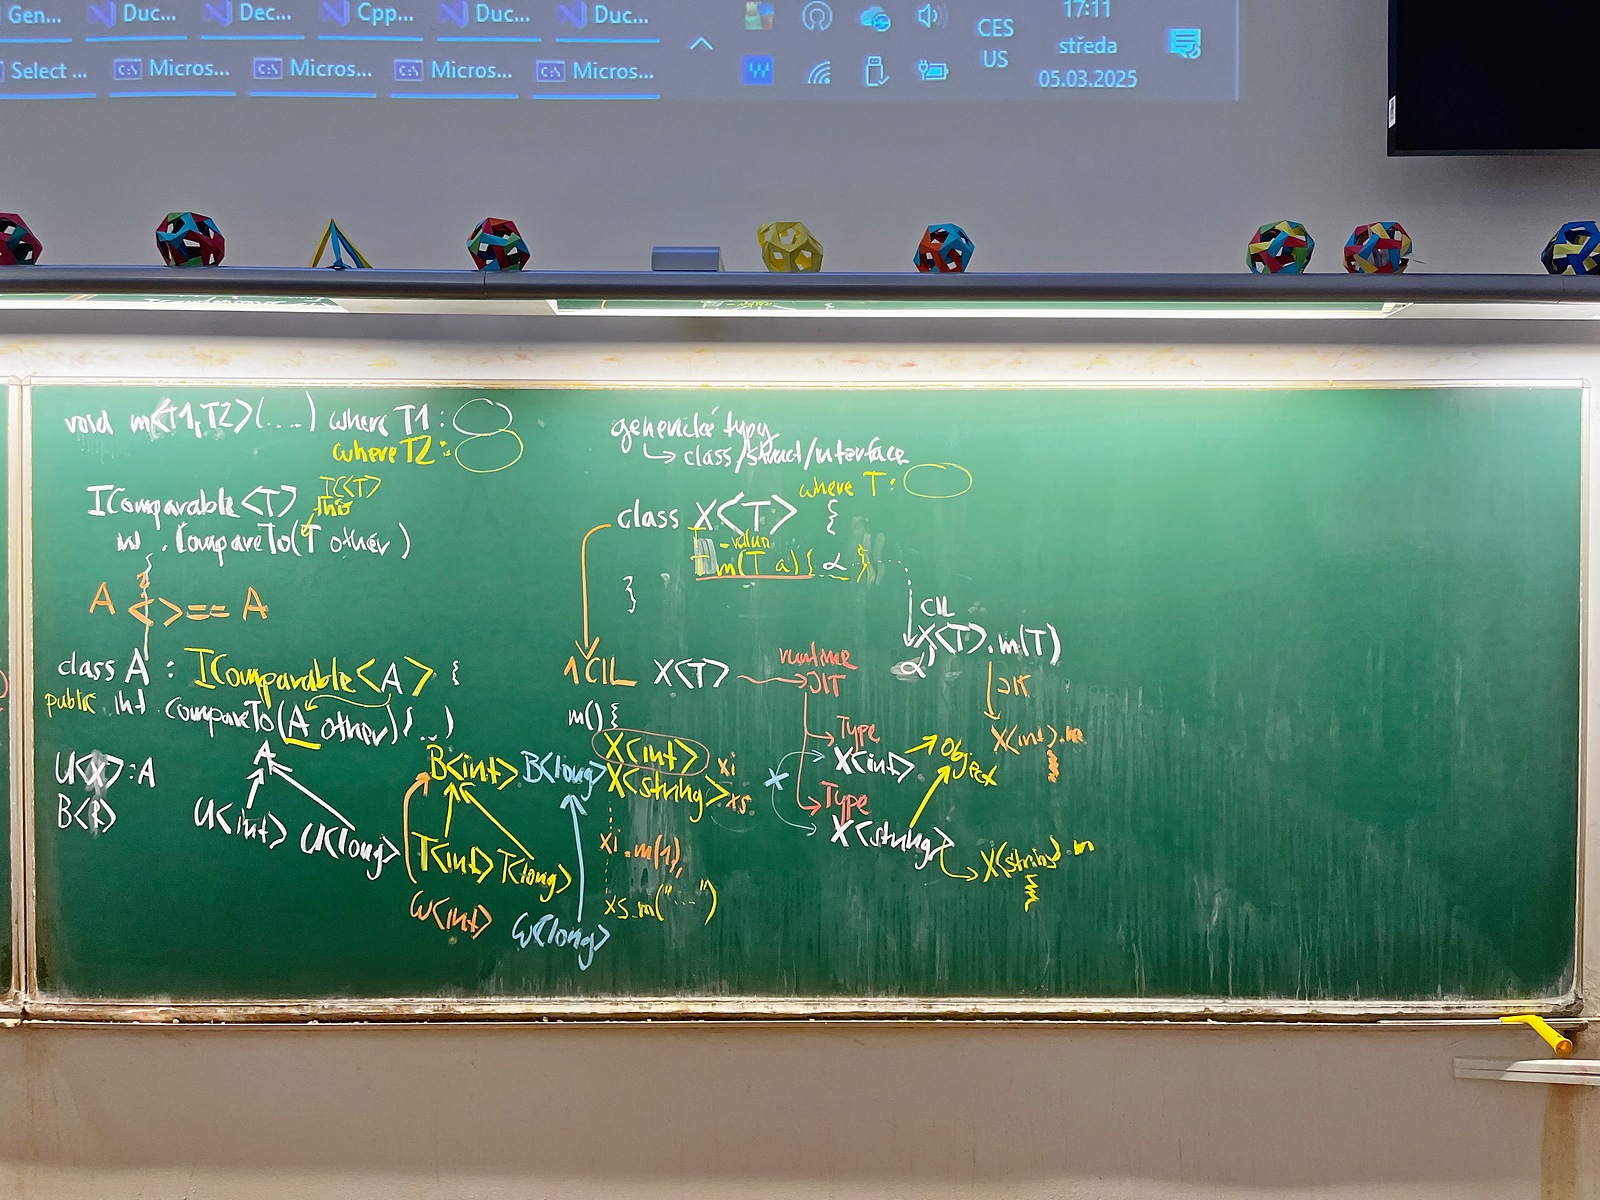 Gen... Duc... Dec... Cpp... Duc... Duc...
CES
US
17:11
středa
05.03.2025
Select ... Micros... Micros... Micros... Micros...
void m<T1,T2>(....) where T1:
where T2:
IComparable<T>
IC<T>
this
int .CompareTo(T other)
A < > == A
class A : IComparable<A> {
public int compareTo(A other){...}
:A
A
U<int> U<long>
B<int> B<long>
T<int> T<long>
W<int> W<long>
generické typy
class/struct/interface
where T:
class X<T> {
T m(T a){ α }
}
1 CIL X<T>
runtime
JIT
CIL
X<T>.m(T)
α
JIT
X<int>.m
m(){
X<int> xi
X<string> xs
xi.m(1)
xs.m("...")
Type
X<int>
Object
Type
X<string>
X<string>.m